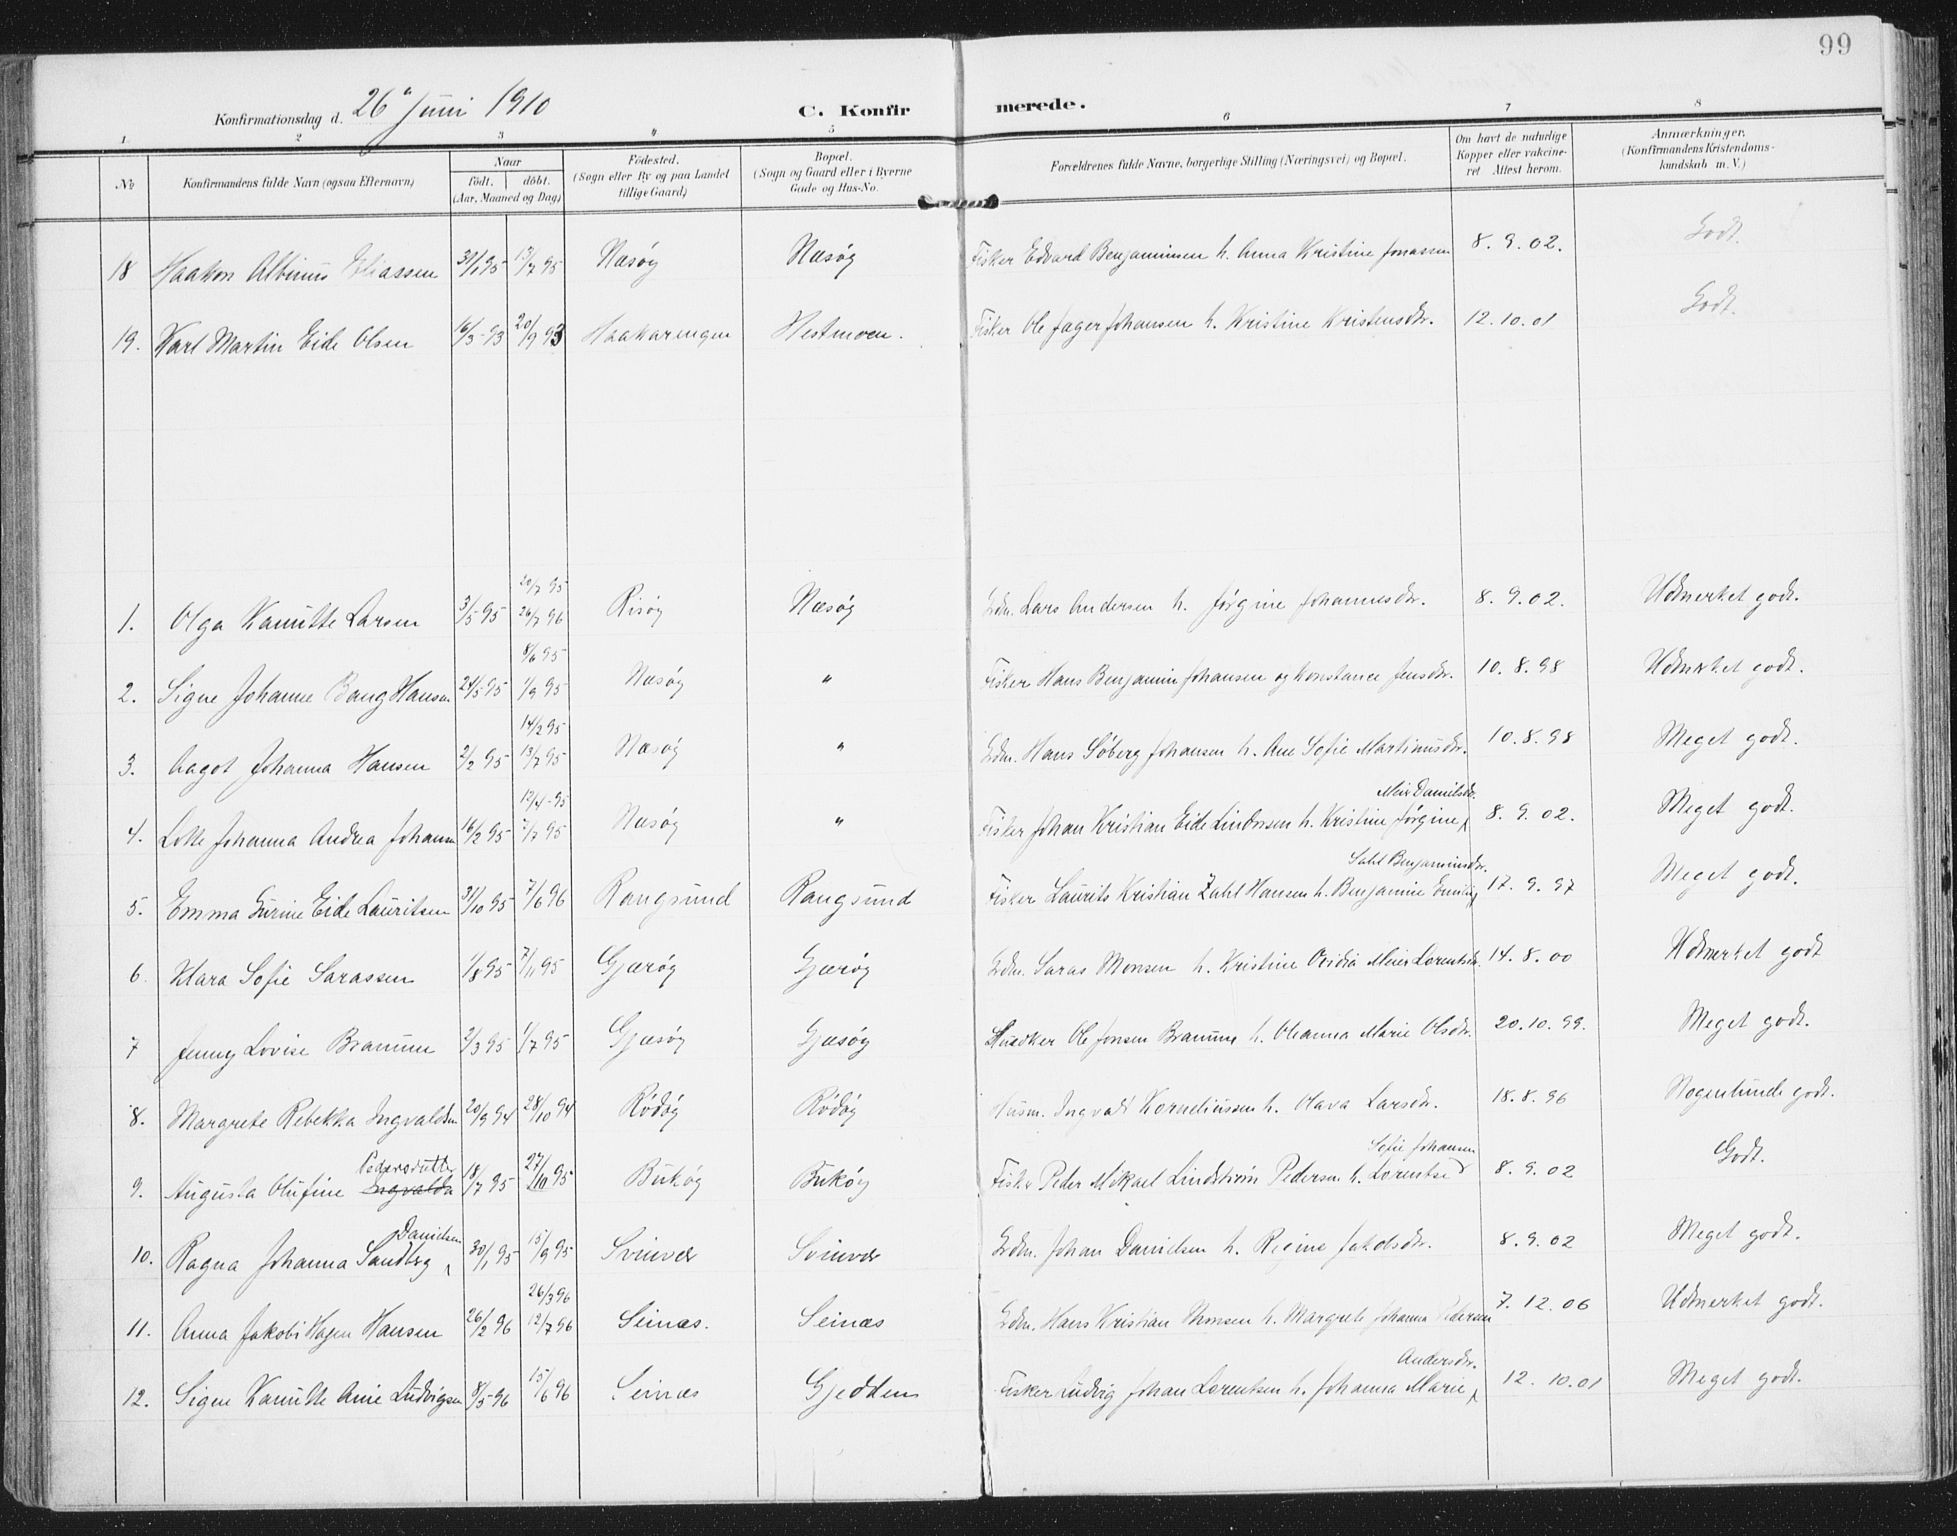 99
Konfirmationsdag d. 26 Juni 1910
C. Konfirmerede.
1 2 3 4 5 6 7 8
No
Konfirmandens fulde Navn (ogsaa Efternavn)
Naar
født. døbt.
(Aar, Maaned og Dag)
Fødested.
(Sogn eller By og paa Landet
tillige Gaard)
Bopæl.
(Sogn og Gaard eller i Byerne
Gade og Hus-No.
Forældrenes fulde Navne, borgerlige Stilling (Næringsvei) og Bopæl.
Om havt de naturlige
Kopper eller vakcine-
ret Attest herom.
Anmærkninger.
(Konfirmandens Kristendoms-
kundskab m. V.)
18 Haakon Albinus Eliassen 31/1 95 13/7 95 Næsøy Næsøy Fisker Edvard Benjaminsen h. Anna Kristine Jonassen 8. 9. 02. Godt.
19. Karl Martin Eide Olsen 16/3-93 20/9 93 Haakaringen Hestmoen. Fisker Ole Jager Johansen h. Kristine Kristensdr. 12.10.01 Godt.
20/7 95
1. Olga Kamitte Larsen 3/5 95 26/7 96 Risøy Næsøy Grdm. Lars Andersen h. Jørgine Johannesdr. 8. 9. 02. Udmerket godt.
8/6 95
2. Signe Johanne Bang Hansen 24/5 95 1/9 95 Næsøy " Fisker Hans Benjamin Johansen og Konstance Jensdr. 10. 8. 98 Udmerket godt.
14/2 95
3. Aagot Johanna Hansen 2/2 95 13/7 95 Næsøy " Grdm. Hans Søberg Johansen h. Ane Sofie Martinusdr. 10. 8. 98 Meget godt.
12/4-95 Meier Danielsdr.
4. Lotte Johanna Andrea Johansen 16/2 95 7/7 95 Næsøy " Fisker Johan Kristian Eide Lindorsen h. Kristine Jørgine 8. 9. 02. Meget godt.
Sahl Benjaminsdr.
5. Emma Eurine Eide Lauritsen 31/10 95 7/6 96 Rangsund Rangsund Fisker Laurits Kristian Zahl Hansen h. Benjamine Emilie 17. 9. 97 Meget godt.
6. Klara Sofie Sarassen 1/8 95 7/11 95 Gjærøy Gjærøy Grdm. Saras Monsen h. Kristine Ovidia Meier Lorentsdr. 14. 8. 00 Udmerket godt
7 Jenny Lovise Bramme 2/3 95 1/7 95 Gjæsøy Gjæsøy Ole Jensen Bramme h. Oleanna Marie Olsdr. 20. 10. 99. Meget godt.
8. Margrete Rebekka Ingvaldsen 20/9 94 28/10 94 Rødøy Rødøy Husm. Ingvald Korneliussen h. Olava Larsdr. 18. 8. 96 Nogenlunde godt.
Pedersdatter Sofie Johansen
9. Augusta Olufine Ingvalda 18/7 95 27/10 95 Bukøy Bukøy Fisker Peder Mikael Lindstrøm Pedersen h. Lorentse 8. 9. 02 Godt.
Danielsen
10. Ragna Johanna Sandberg 30/1 95 15/9 95 Svinvær Svinvær Grdm. Johan Danielsen h. Regine Jakobsdr. 8. 9. 02 Meget godt.
26/3 96
11. Anna Jakobi Hagen Hansen 26/2 96 12/7 96 Seinæs. Seinæs Grdm. Hans Kristian Monsen h. Margrete Johanna Pedersen 7. 12. 06 Udmerket godt.
Andersdr.
12. Signe Kamitte Anie Ludvigsen 8/5-96 15/6 96 Seinæs Gjedden Fisker Ludvig Johan Lorentsen h. Johanna Marie 12. 10. 01 Meget godt.